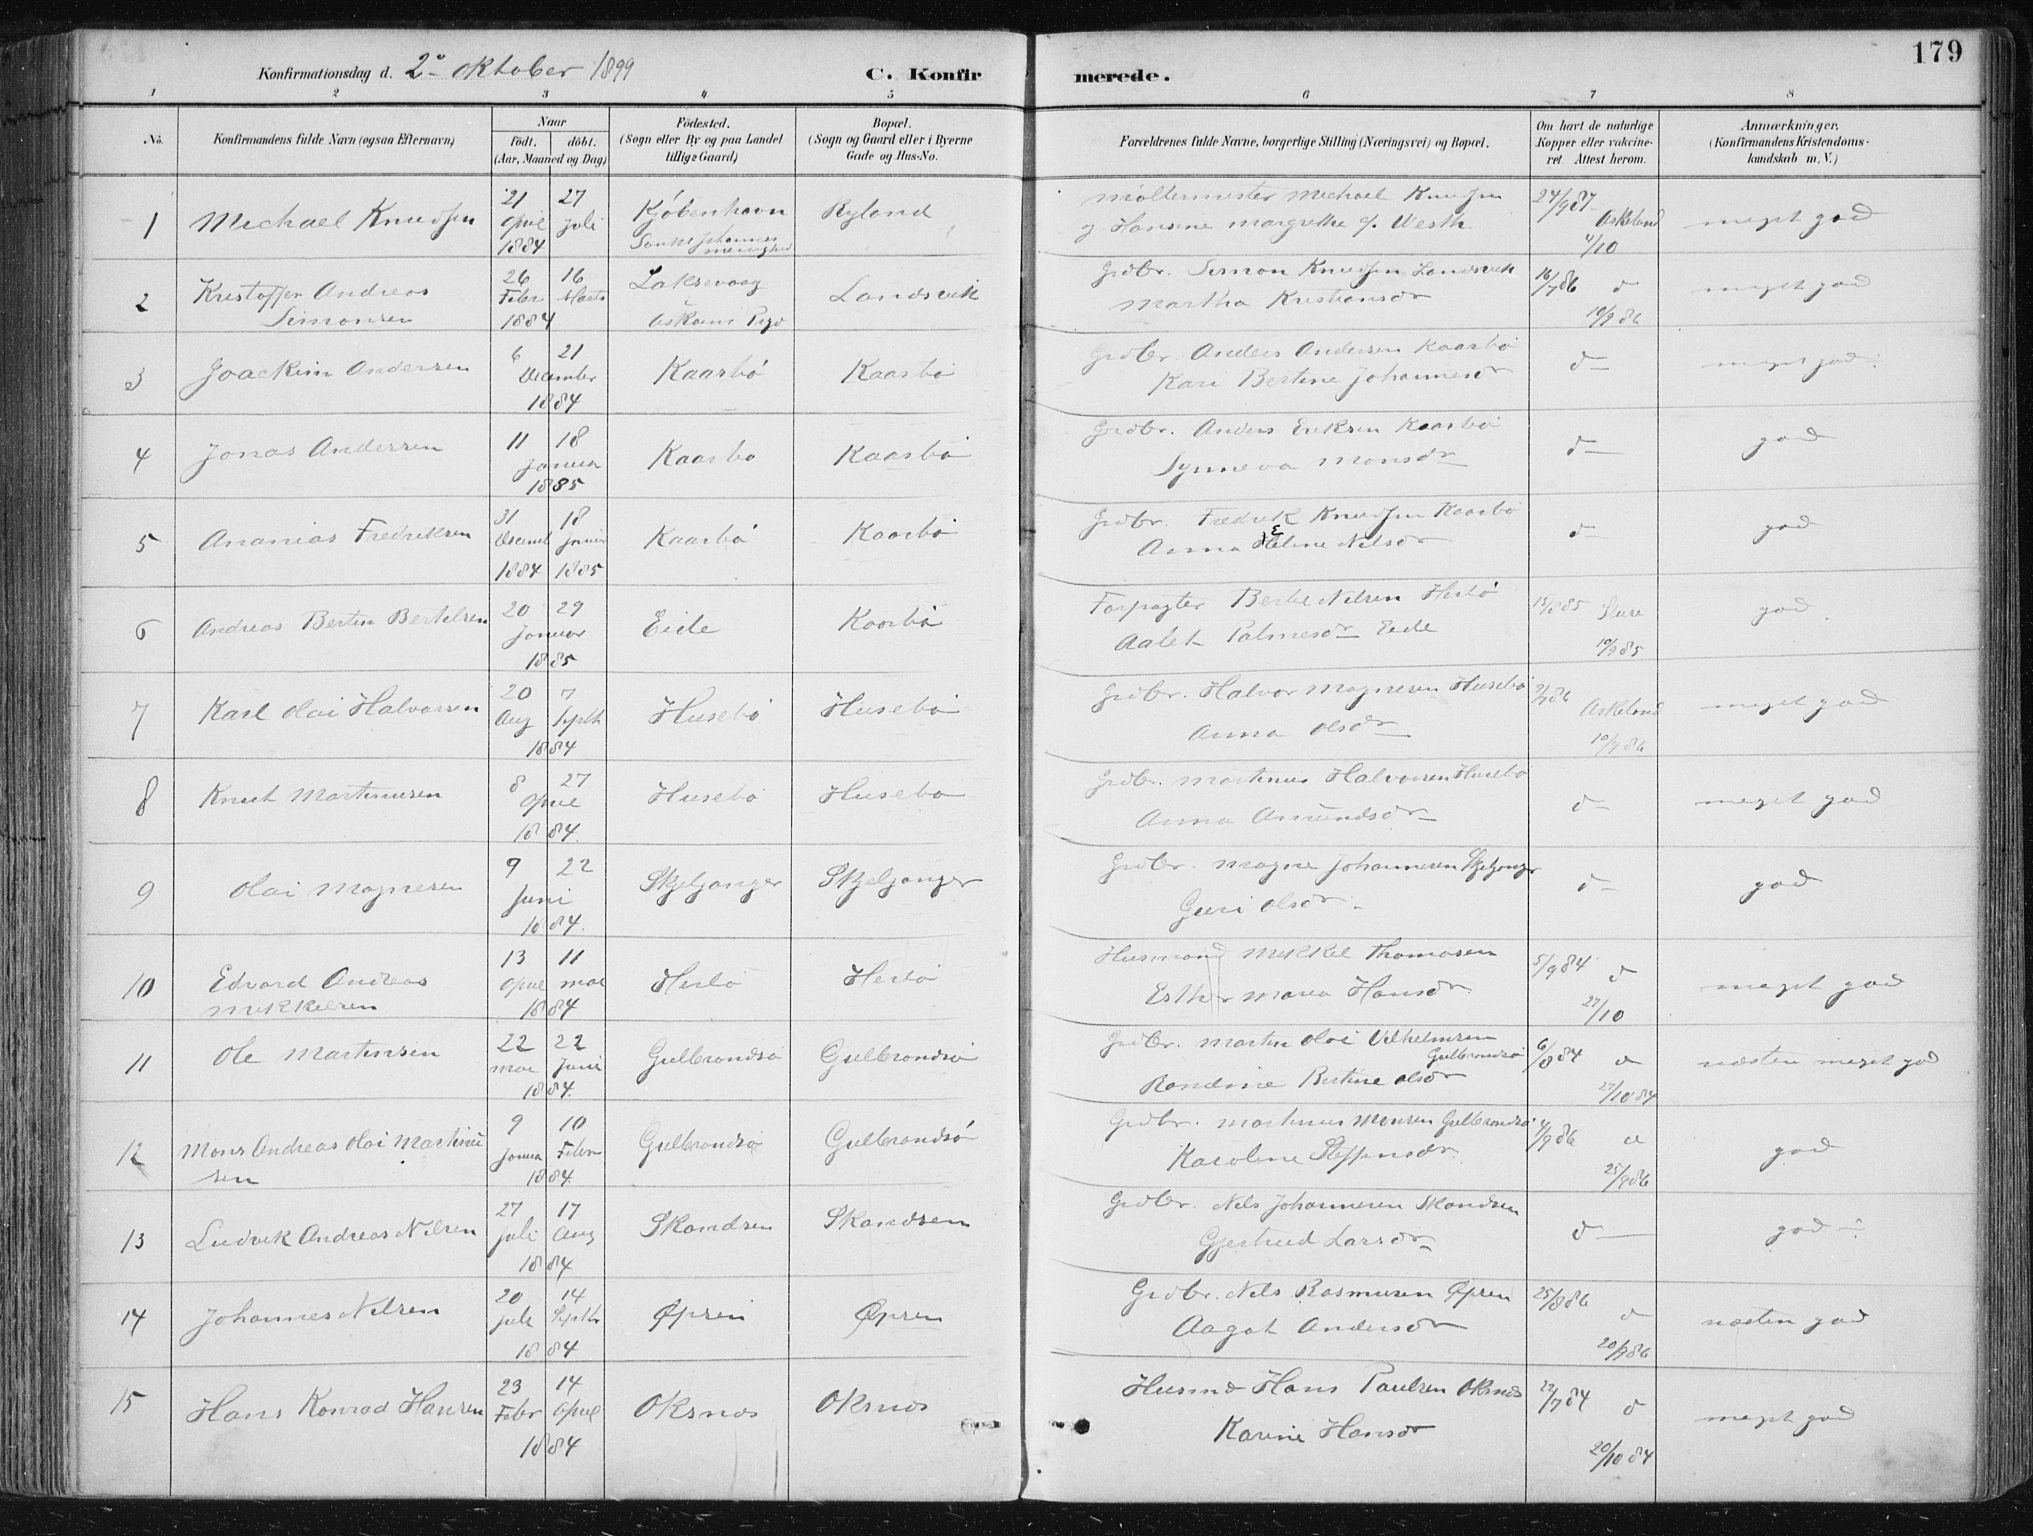 Konfirmationsdag d. 2 oktober 1899
C. Konfirmerede.
179
1 2 3 4 5 6 7 8
No. Konfirmandens fulde Navn (ogsaa Efternavn) Naar Födt. döbt. (Aar, Maaned og Dag) Födested. (Sogn eller By og paa Landet tillige Gaard) Bopæl. (Sogn og Gaard eller i Byerne Gade og Hus-No. Forældrenes fulde Navne, borgerlige Stilling (Næringsvei) og Bopæl. Om havt de naturlige Kopper eller vakcineret. Attest herom. Anmærkninger, (Konfirmandens Kristendomskundskab m. V.)
1 Michael Knudsen 21 april 1884 27 juli Kjöbenhavn Ryland Möllermester Michael Knudsen
og Hansine Margrethe f. Westh 24/9 87 Askeland 4/10 meget god
2 Kristoffer Andreas Simonsen 26 Febr 16 Marts 1884 Laksevaag Landsvik Grdbr. Simon Knudsen Landsvik
Martha Kristiansdr 16/7 86 d 10/9 86 meget god
3 Joackim Andersen 6 21 December 1884 Kaarbö Kaarbö Grdbr. Anders Andersen Kaarbö
Kari Bertine Johannesdr d— meget god
4 Jonas Andersen 11 18 Januar 1885 Kaarbo Kaarbö Grdbr. Anders Eriksen Kaarbö
Synneva Monsdr d— god
5 Ananias Fredriksen 31 Decembr 1884 18 Januar 1885 Kaarbö Kaarbö Grdbr. Fredrik Knudsen Kaarbö
Anna Eline Nilsdr d— god
6 Andreas Bertin Bertelsen 20 29 Januar 1885 Eide Kaarbö Forpagter Bertel Nilsen Herlö
Aalet Palmesdr Eide 15/8 85 10/9 85 god
7 Karl Olai Halvorsen 20 Aug 7 Septb 1884 Husebö Husebö Grdbr. Halvor Magnesen Husebö
Anna Olsdr 2/7 86 Askeland 10/9 86 meget god
8 Knut Martinusen 8 27 April 1884 Husebö Husebö Grdbr. Martinus Halvorsen Husebö
Anna Amundsdr d— meget god
9 Olai Magnesen 9 22 Juni 1884. Skjeljanger Skjeljanger Grdbr. Magne Johannesen Skjeljanger
Guri Olsdr. d— god
10 Edvard Andreas Mikkelsen 13 April 11 Mai 1884 Herlö Herlö Husmand Mikkel Thomasen
Esther Maria Hansdr 5/9 84 d 27/10 meget god
11 Ole Martinsen 22 Mai 22 Juni 1884. Gulbrandsö Gulbrandsö Grdbr. Martin Olai Vilhelmsen Gulbrandsö
Randine Bertine Olsdr 6/8 84 d 27/10 84 næsten meget god
12 Mons Andreas Olai Martinusen 9 Janua 10 Febru 1884 Gulbrandsö Gulbrandsö Grdbr. Martinus Monsen Gulbrandsö
Karoline Steffensdr. 4/9 86 d 25/9 86 god
13 Ludvik Andreas Nilsen 27 juli 17 Aug 1884 Skandsen Skandsen Grdbr. Nils Johannesen Skandsen
Gjertrud Larsdr d— god
14 Johannes Nilsen 20 juli 14 Septb 1884 Øpsen Øpsen Grdbr. Nils Rasmusen Øpsen
Aagot Andersdr 25/8 86 d 20/9 86 næsten god
15 Hans Konrad Hansen 23 Febr 14 April 1884 Oksnes Oksnes Husmd Hans Paulsen Oksnes
Karine Hansdr 22/7 84 d 20/10 84 meget god